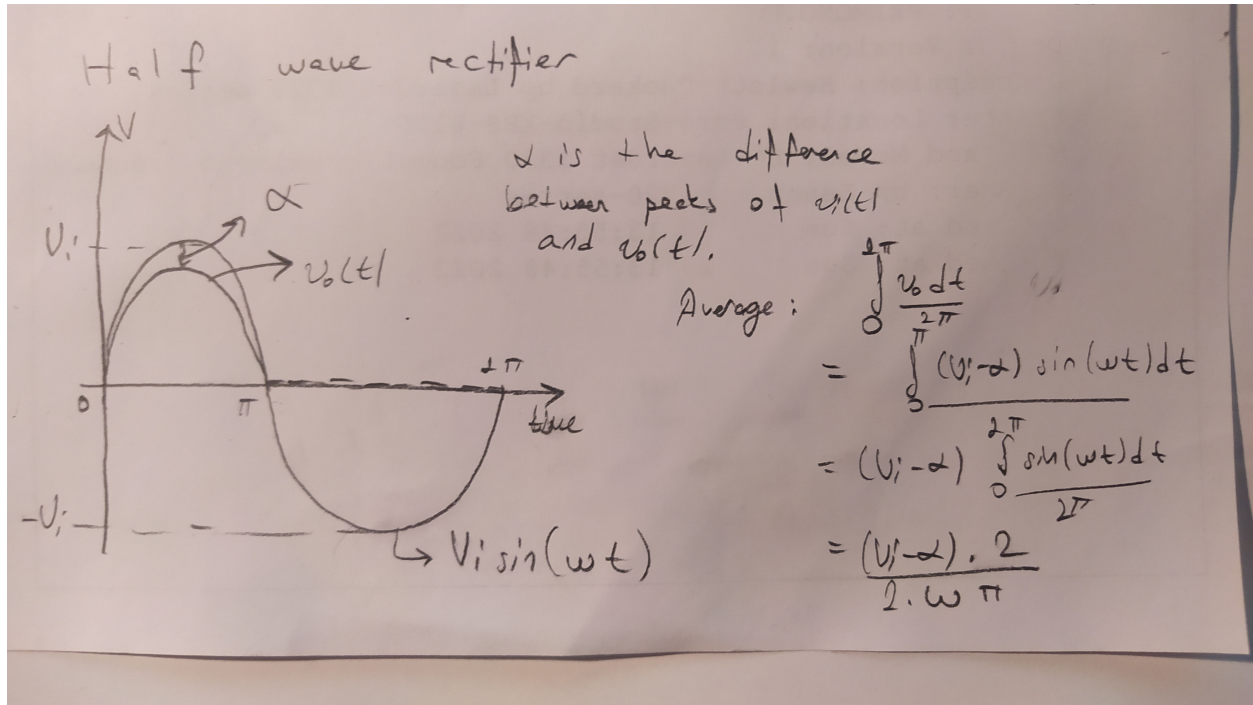 Half wave rectifier
V
α
Vi
vo(t)
0
π
2π
time
-Vi
Vi sin(ωt)
α is the difference
between peeks of vi(t)
and vo(t).
Average : ∫₀^2π vo dt / 2π
= ∫₀^π (Vi-α) sin(ωt) dt / 2π
= (Vi-α) ∫₀ sin(ωt) dt / 2π
= (Vi-α) . 2 / 2.ωπ